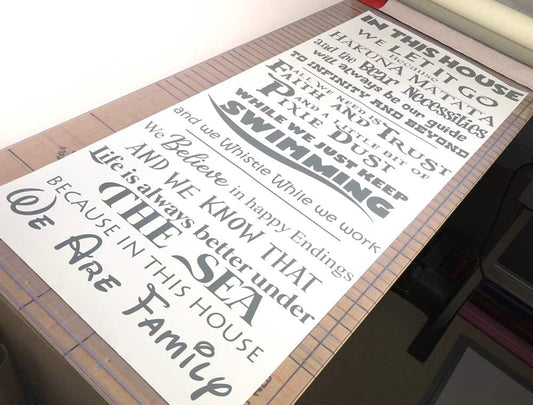 IN THIS HOUSE
WE LET IT GO
Because
HAKUNA MATATA
and the Bear Necessities
will always be our guide
TO INFINITY AND BEYOND
ALL WE NEED IS
FAITH AND TRUST
AND A LITTLE BIT OF
PIXIE DUST
WHILE WE JUST KEEP
SWIMMING
and we Whistle While we work
We Believe in happy Endings
AND WE KNOW THAT
Life is always better under
THE SEA
BECAUSE IN THIS HOUSE
WE ARE FAMILY